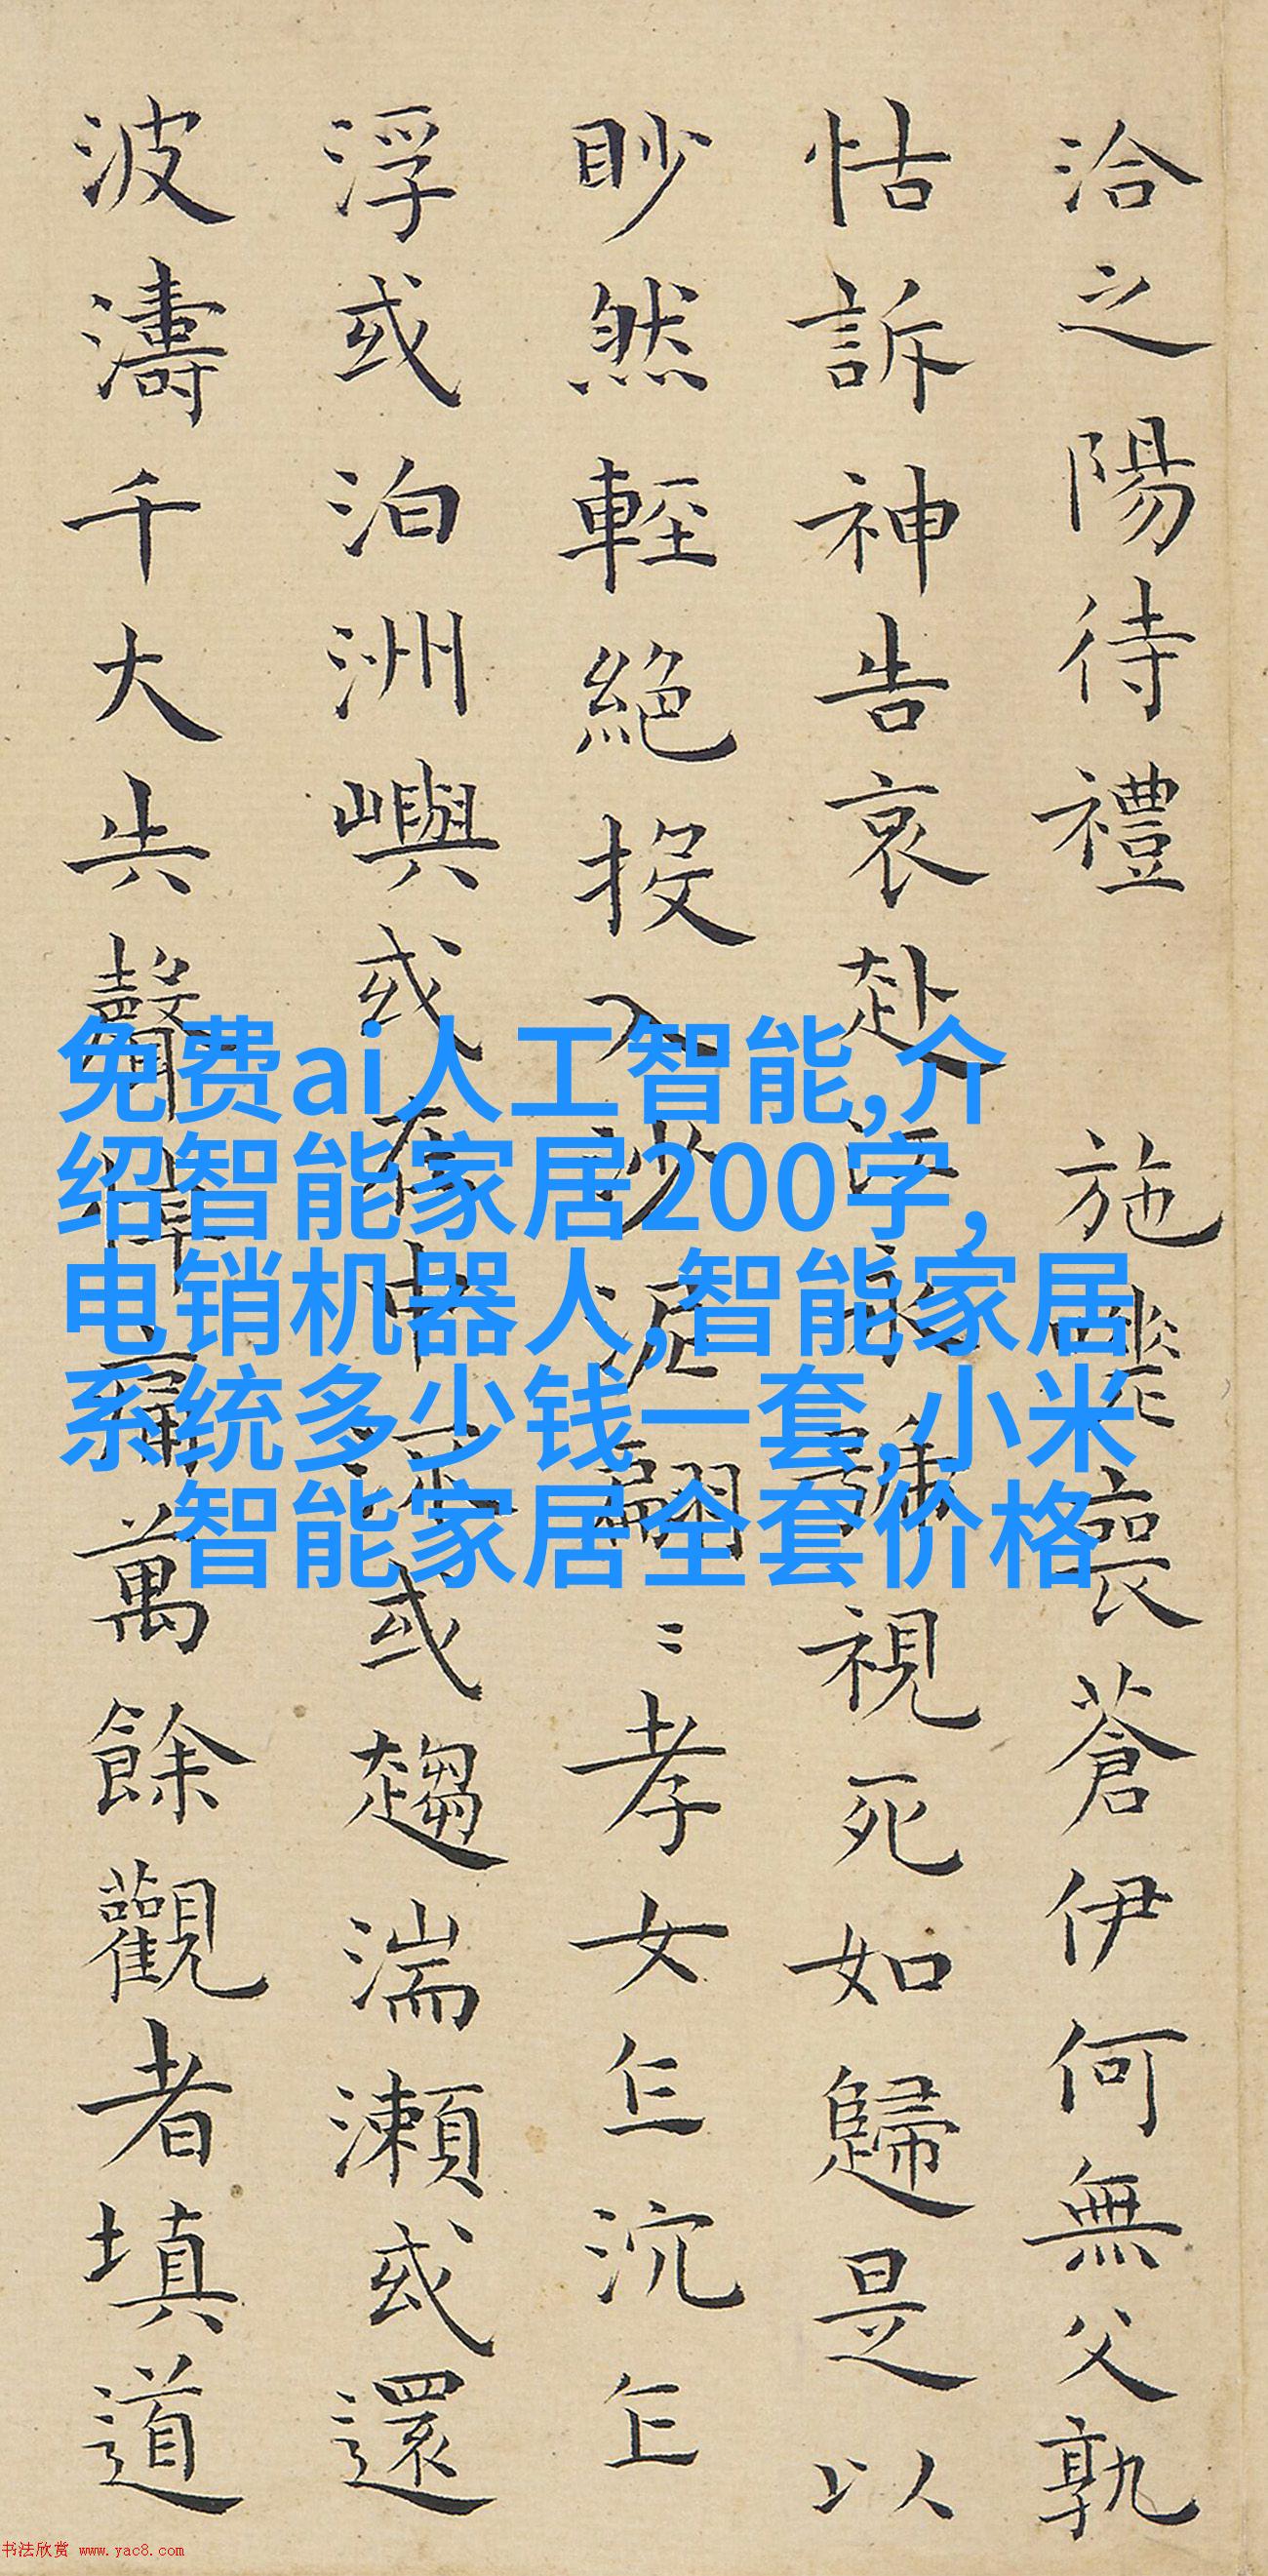 洽之陽待禮施嗟喪蒼伊何無父孰
怙訴神告哀赴江永號視死如歸是以
眇然輕絕投入沙泥翩〻孝女乍沉乍
浮或泊洲嶼或在中流或趨湍瀨或還
波濤千大失聲悼痛萬餘觀者填道
免费ai人工智能,介
绍智能家居200字,
电销机器人,智能家居
系统多少钱一套,小米
智能家居全套价格
书法欣赏 www.yac8.com